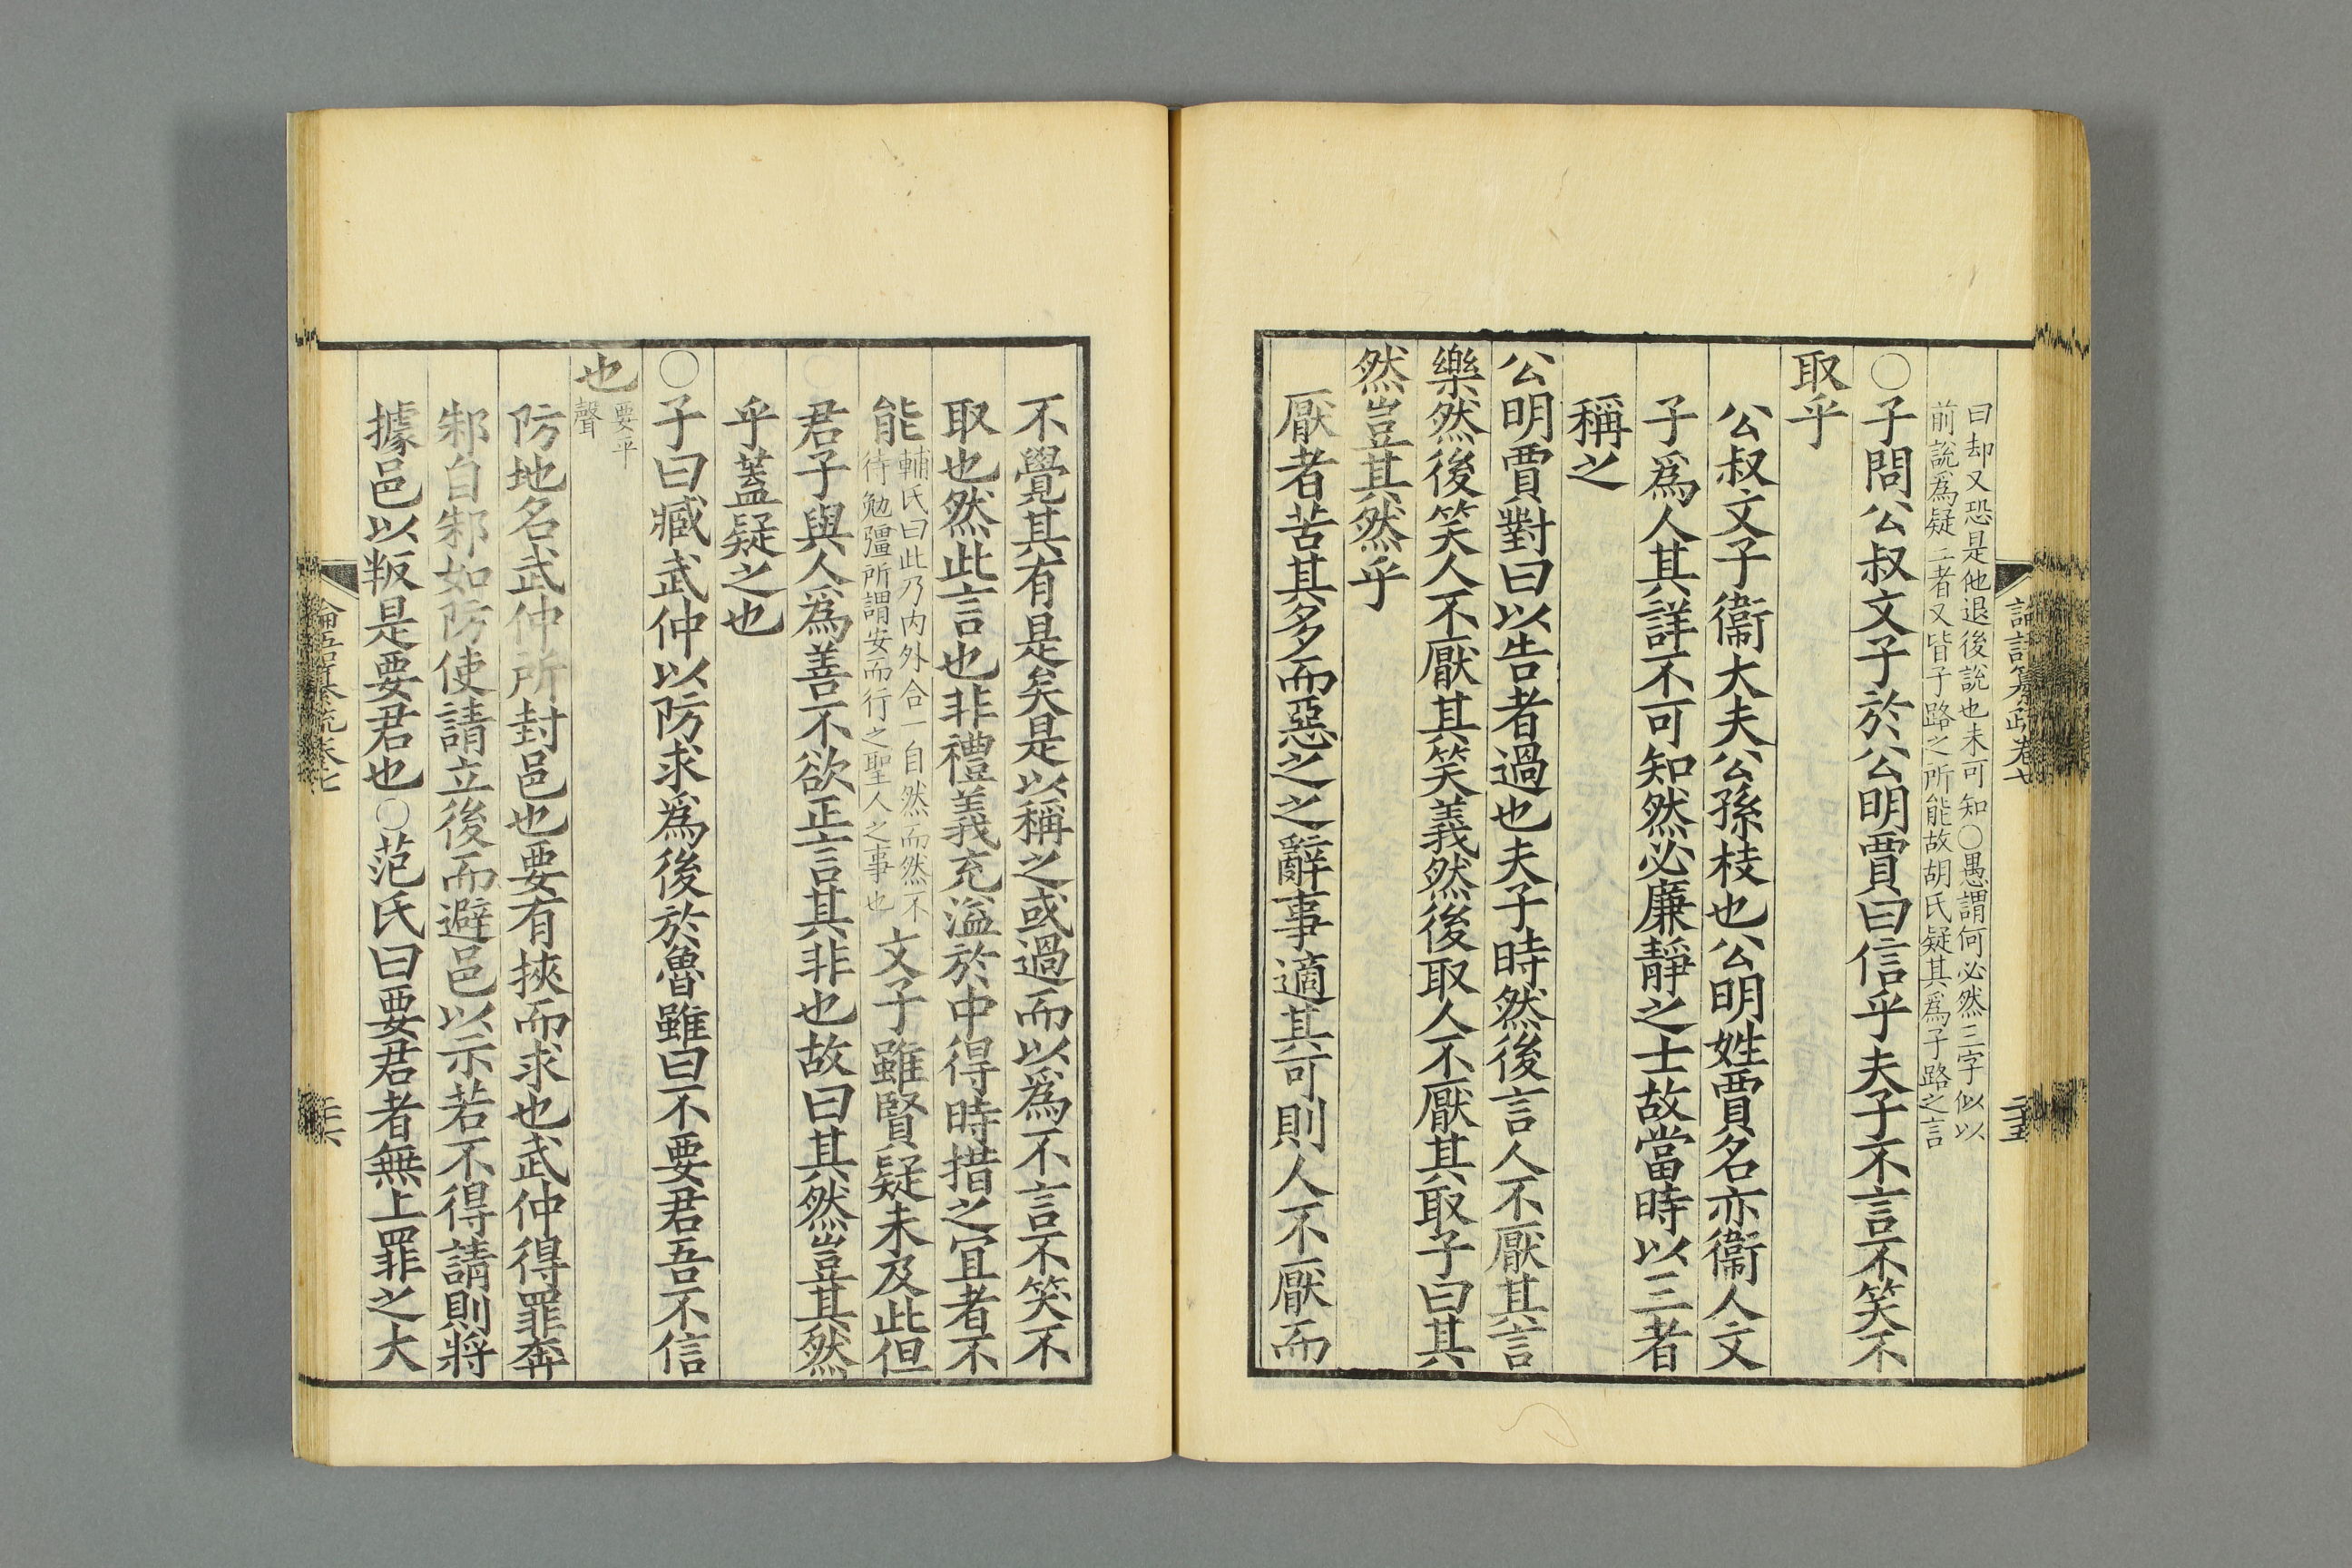 曰却又恐是他退後說也未可知○愚謂何必然三字似以
前說爲疑二者又皆子路之所能故胡氏疑其爲子路之言
○子問公叔文子於公明賈曰信乎夫子不言不笑不
取乎
公叔文子衞大夫公孫枝也公明姓賈名亦衞人文
子爲人其詳不可知然必廉靜之士故當時以三者
稱之
公明賈對曰以告者過也夫子時然後言人不厭其言
樂然後笑人不厭其笑義然後取人不厭其取子曰其
然豈其然乎
厭者苦其多而惡之之辭事適其可則人不厭而
不覺其有是矣是以稱之或過而以爲不言不笑不
取也然此言也非禮義充溢於中得時措之宜者不
能
輔氏曰此乃内外合一自然而然不
待勉彊所謂安而行之聖人之事也
文子雖賢疑未及此但
君子與人爲善不欲正言其非也故曰其然豈其然
乎蓋疑之也
○子曰臧武仲以防求爲後於魯雖曰不要君吾不信
也
要平
聲
防地名武仲所封邑也要有挾而求也武仲得罪奔
邾自邾如防使請立後而避邑以示若不得請則將
據邑以叛是要君也○范氏曰要君者無上罪之大